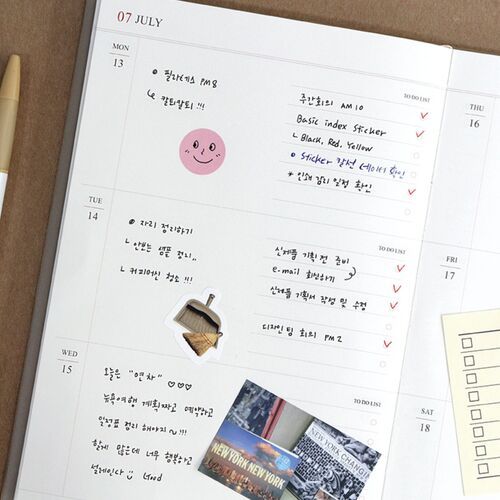 07 JULY
MON
13
필라테스 PM 8
칼퇴칼퇴 !!!
TO DO LIST
주간회의 AM 10
Basic index sticker
Black, Red, Yellow
sticker 칼선 데이터 확인
인쇄 감리 일정 확인
TUE
14
자리 정리하기
안쓰는 샘플 정리..
커피머신 청소 !!!
TO DO LIST
신제품 기획전 준비
e.mail 회신하기
신제품 기획서 작성 및 수정
디자인팀 회의 PM 2
WED
15
오늘은 "연차" ♡♡♡
뉴욕여행 계획짜고 예약하고
일정표 정리 해야지~!!!
할게 많은데 너무 행복하고
설레인다 Good
TO DO LIST
NEW YORK NEW YORK
NEW YORK CHANG
THU
16
FRI
17
SAT
18